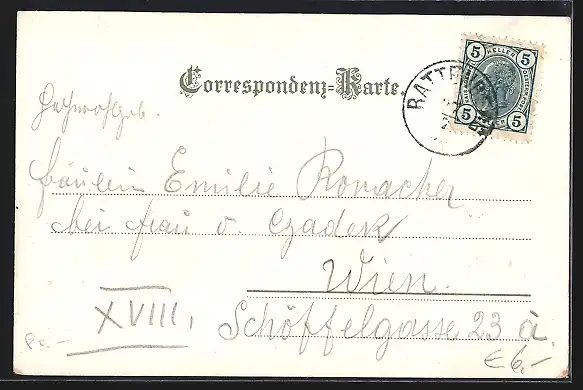 Correspondenz-Karte.
5 HELLER 5
5 5
RATTENBERG
Hochwohlgeb.
Fräulein Emilie Rovacher
bei Frau v. Czadek
Wien.
XVIII,
Schöffelgasse 23 a.
€ 6,-